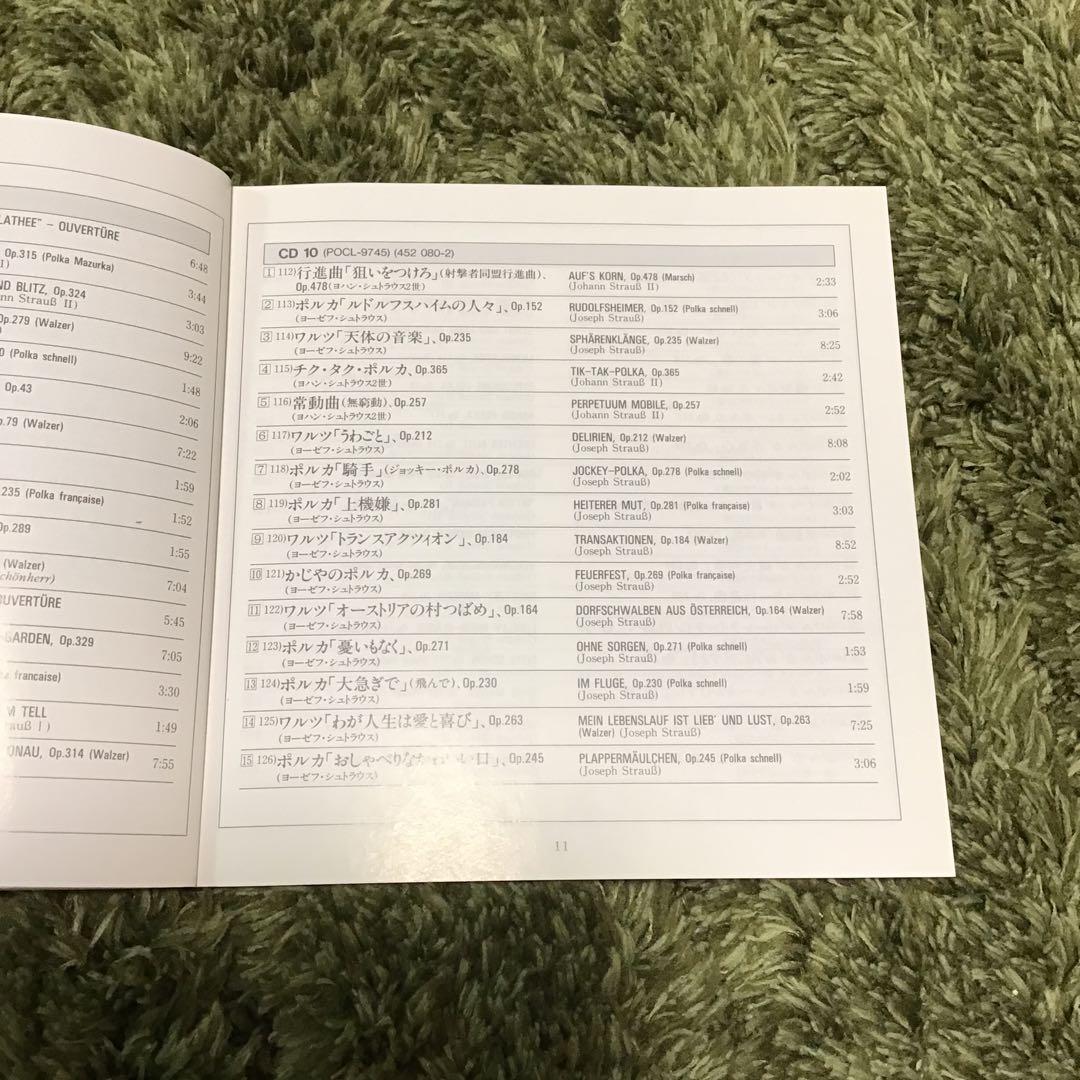 LATHEE" – OUVERTÜRE
6:48
Op.315 (Polka Mazurka)
I)
3:44
ND BLITZ, Op.324
hann Strauß II)
3:03
Op.279 (Walzer)
9:22
0 (Polka schnell)
1:48
Op.43
2:06
p.79 (Walzer)
7:22
1:59
235 (Polka française)
1:52
Op.289
1:55
(Walzer)
chönherr)
7:04
OUVERTÜRE
5:45
-GARDEN, Op.329
7:05
a française)
3:30
M TELL
auß I)
1:49
ONAU, Op.314 (Walzer)
7:55
CD 10 (POCL-9745) (452 080-2)
1 112)行進曲「狙いをつけろ」(射撃者同盟行進曲)、 AUF'S KORN, Op.478 (Marsch) 2:33
Op.478(ヨハン・シュトラウス2世) (Johann Strauß II)
2 113)ポルカ「ルドルフスハイムの人々」、Op.152 RUDOLFSHEIMER, Op.152 (Polka schnell) 3:06
(ヨーゼフ・シュトラウス) (Joseph Strauß)
3 114)ワルツ「天体の音楽」、Op.235 SPHÄRENKLÄNGE, Op.235 (Walzer) 8:25
(ヨーゼフ・シュトラウス) (Joseph Strauß)
4 115)チク・タク・ポルカ、Op.365 TIK-TAK-POLKA, Op.365 2:42
(ヨハン・シュトラウス2世) (Johann Strauß II)
5 116)常動曲(無窮動)、Op.257 PERPETUUM MOBILE, Op.257 2:52
(ヨハン・シュトラウス2世) (Johann Strauß II)
6 117)ワルツ「うわごと」、Op.212 DELIRIEN, Op.212 (Walzer) 8:08
(ヨーゼフ・シュトラウス) (Joseph Strauß)
7 118)ポルカ「騎手」(ジョッキー・ポルカ)、Op.278 JOCKEY-POLKA, Op.278 (Polka schnell) 2:02
(ヨーゼフ・シュトラウス) (Joseph Strauß)
8 119)ポルカ「上機嫌」、Op.281 HEITERER MUT, Op.281 (Polka française) 3:03
(ヨーゼフ・シュトラウス) (Joseph Strauß)
9 120)ワルツ「トランスアクツィオン」、Op.184 TRANSAKTIONEN, Op.184 (Walzer) 8:52
(ヨーゼフ・シュトラウス) (Joseph Strauß)
10 121)かじやのポルカ、Op.269 FEUERFEST, Op.269 (Polka française) 2:52
(ヨーゼフ・シュトラウス) (Joseph Strauß)
11 122)ワルツ「オーストリアの村つばめ」、Op.164 DORFSCHWALBEN AUS ÖSTERREICH, Op.164 (Walzer) 7:58
(ヨーゼフ・シュトラウス) (Joseph Strauß)
12 123)ポルカ「憂いもなく」、Op.271 OHNE SORGEN, Op.271 (Polka schnell) 1:53
(ヨーゼフ・シュトラウス) (Joseph Strauß)
13 124)ポルカ「大急ぎで」(飛んで)、Op.230 IM FLUGE, Op.230 (Polka schnell) 1:59
(ヨーゼフ・シュトラウス) (Joseph Strauß)
14 125)ワルツ「わが人生は愛と喜び」、Op.263 MEIN LEBENSLAUF IST LIEB' UND LUST, Op.263 7:25
(ヨーゼフ・シュトラウス) (Walzer) (Joseph Strauß)
15 126)ポルカ「おしゃべりなかわいい口」、Op.245 PLAPPERMÄULCHEN, Op.245 (Polka schnell) 3:06
(ヨーゼフ・シュトラウス) (Joseph Strauß)
11